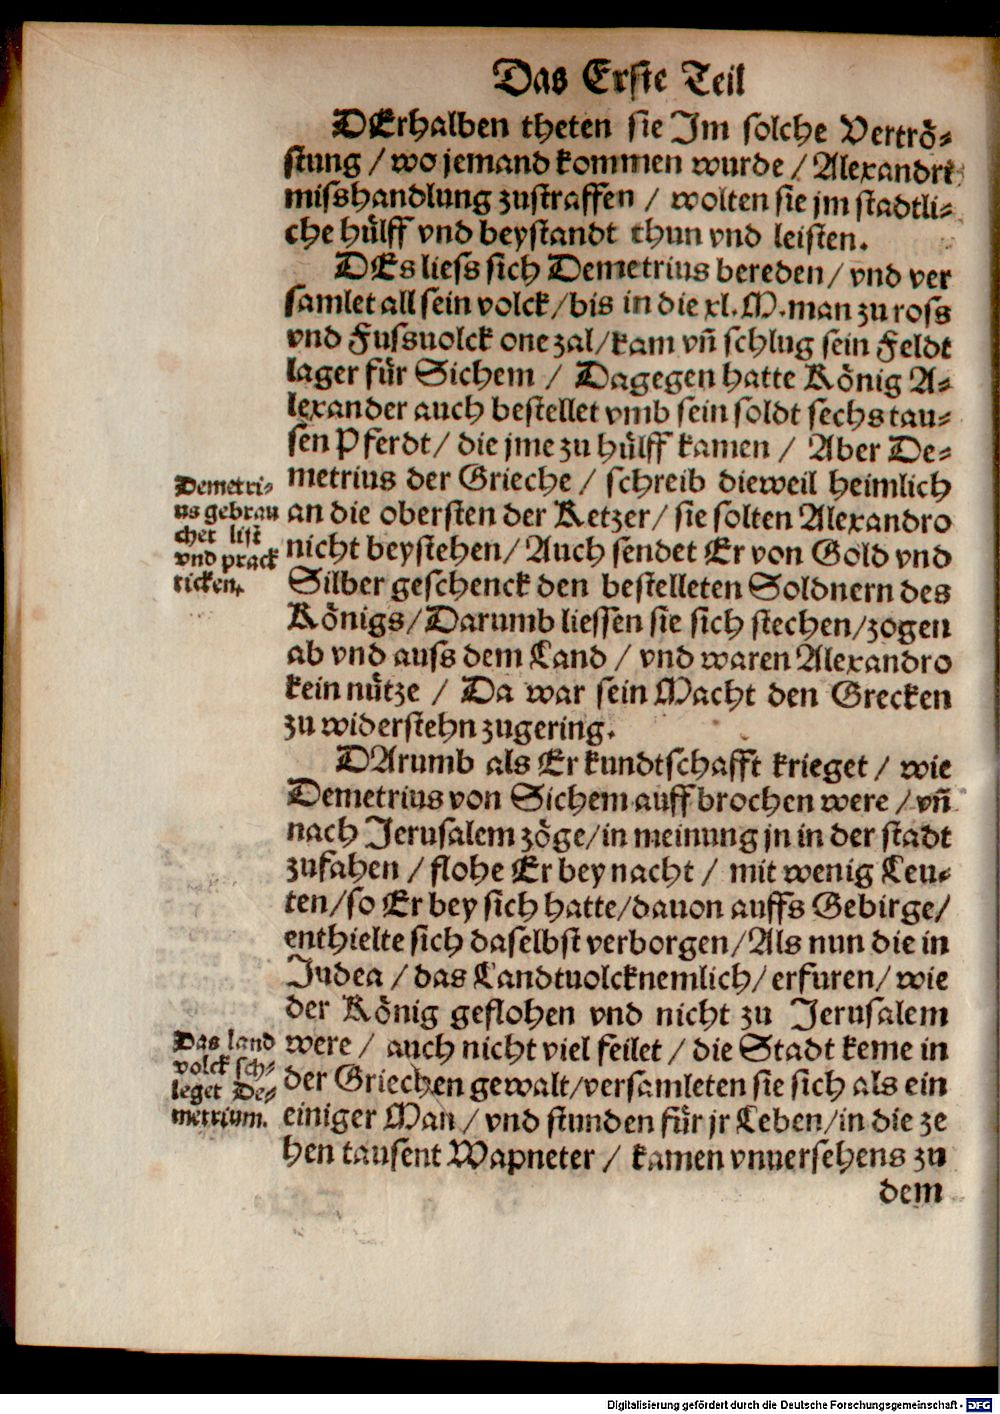 Das Erste Teil
DErhalben theten sie Im solche Vertrö-
stung / wo jemand kommen wurde / Alexandri
misshandlung zustraffen / wolten sie jm stadtli-
che hülff vnd beystandt thun vnd leisten.
DEs liess sich Demetrius bereden / vnd ver
samlet all sein volck / bis in die xl. M. man zu ross
vnd Fussuolck one zal / kam vñ schlug sein Feldt
lager für Sichem / Dagegen hatte König A-
lexander auch bestellet vmb sein soldt sechs tau-
sen Pferdt / die jme zu hülff kamen / Aber De-
metrius der Grieche / schreib dieweil heimlich
an die obersten der Ketzer / sie solten Alexandro
nicht beystehen / Auch sendet Er von Gold vnd
Silber geschenck den bestelleten Soldnern des
Königs / Darumb liessen sie sich stechen / zogen
ab vnd auss dem Land / vnd waren Alexandro
kein nütze / Da war sein Macht den Grecken
zu widerstehn zugering.
Demetri-
us gebrau
chet list
vnd prack
ticken.
DArumb als Er kundtschafft krieget / wie
Demetrius von Sichem auff brochen were / vñ
nach Jerusalem zöge / in meinung jn in der stadt
zufahen / flohe Er bey nacht / mit wenig Leu-
ten / so Er bey sich hatte / dauon auffs Gebirge /
enthielte sich daselbst verborgen / Als nun die in
Judea / das Landtuolck nemlich / erfuren / wie
der König geflohen vnd nicht zu Jerusalem
were / auch nicht viel feilet / die Stadt keme in
der Griechen gewalt / versamleten sie sich als ein
einiger Man / vnd stunden für jr Leben / in die ze
hen tausent Wapneter / kamen vnuersehens zu
dem
Das land
volck sch-
leget De-
metrium.
Digitalisierung gefördert durch die Deutsche Forschungsgemeinschaft - DFG